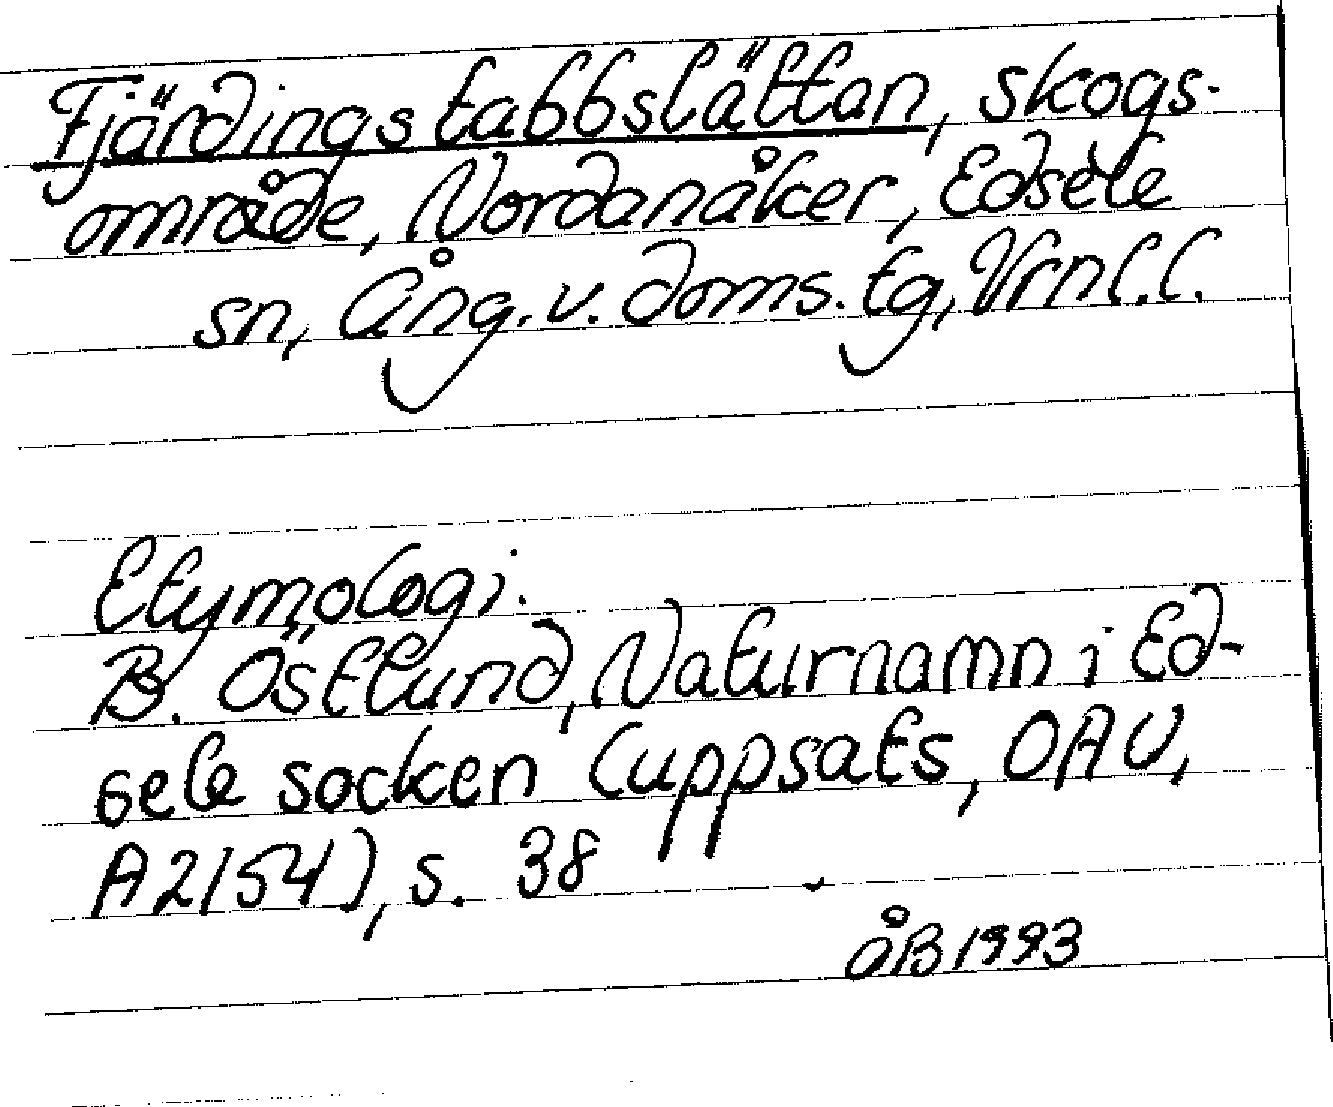 Fjärdingstabbslåttan, skogs-
område, Nordanåker, Edsele
sn, Ång. v. doms. tg, Vrnl.l.
Etymologi.
B. Östlund, Naturnamn i Ed-
sele socken (uppsats, OAU,
A2154), s. 38
ÅB 1993